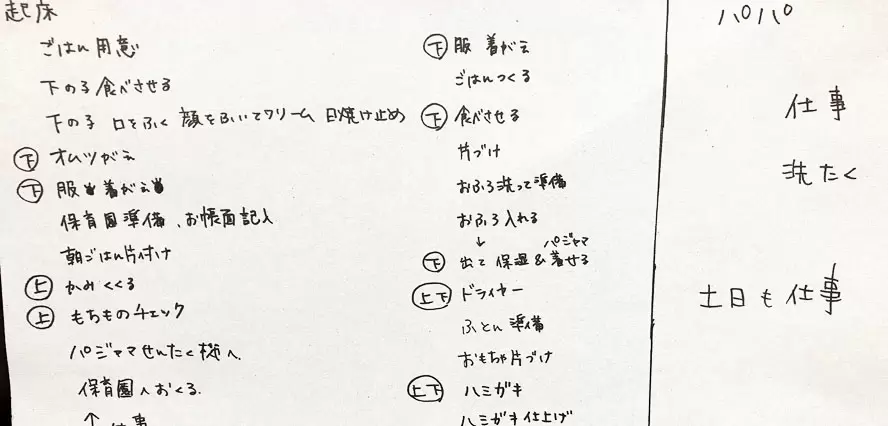 起床
ごはん用意
下の子食べさせる
下の子 口をふく 顔をふいてクリーム 日焼け止め
下 オムツがえ
下 服 着がえ
保育園準備、お帳面記入
朝ごはん片付け
上 かみくくる
上 もちものチェック
パジャマせんたく機へ
保育園へおくる。
↑ 仕事
下 服 着がえ
ごはんつくる
下 食べさせる
片づけ
おふろ洗って準備
おふろ入れる
↓ パジャマ
下 出て 保湿&着せる
上下 ドライヤー
ふとん準備
おもちゃ片づけ
上下 ハミガキ
ハミガキ仕上げ
パパ
仕事
洗たく
土日も仕事